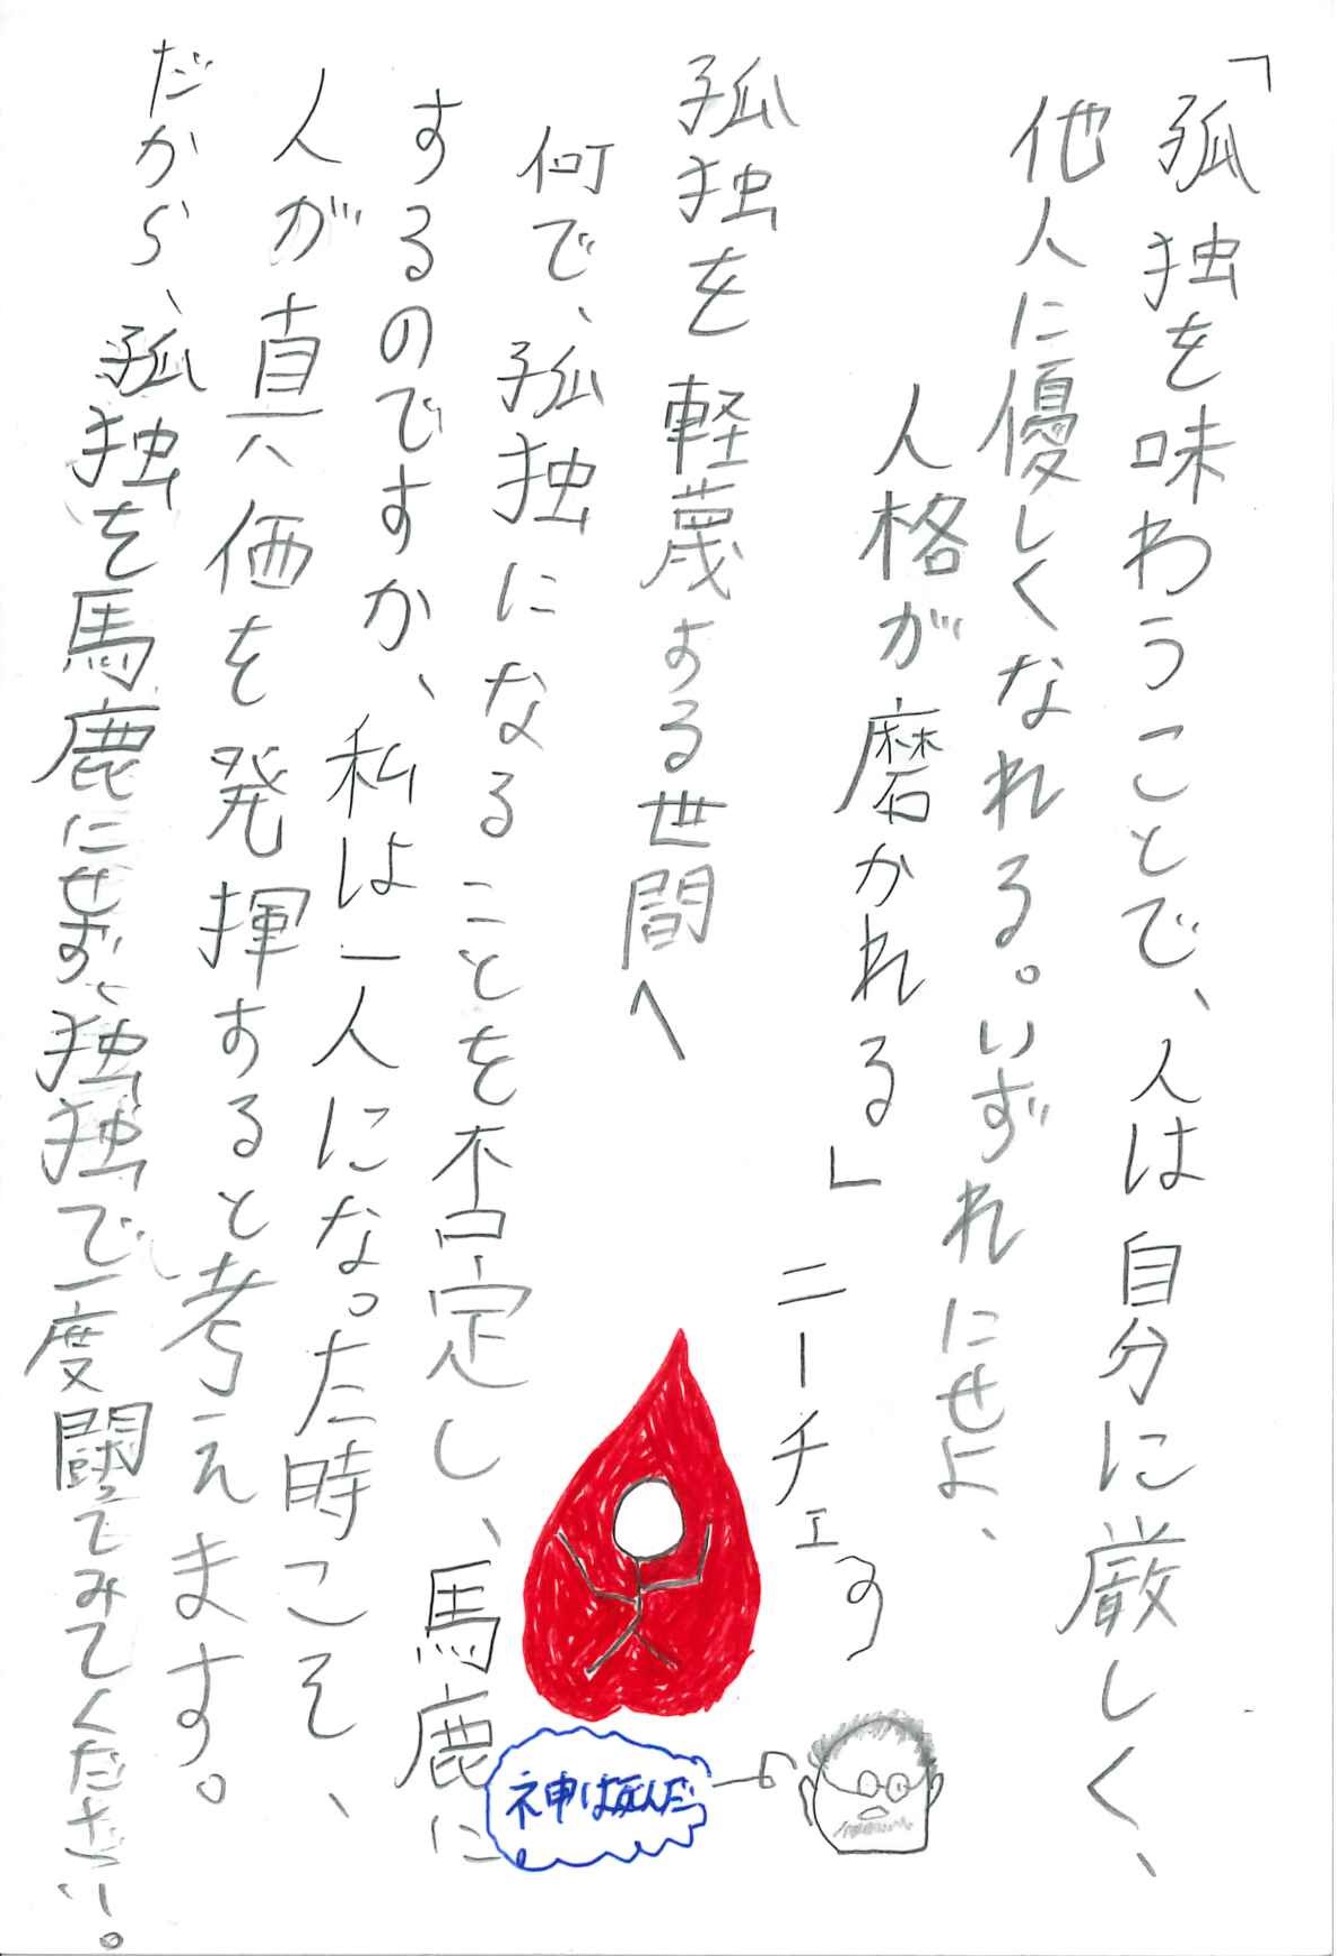 「孤独を味わうことで、人は自分に厳しく、
他人に優しくなれる。いずれにせよ、
人格が磨かれる」ニーチェ
孤独を軽蔑する世間へ
何で、孤独になることを否定し、馬鹿に
するのですか、私は一人になった時こそ、
人が真価を発揮すると考えます。
だから、孤独を馬鹿にせず、独独で一度闘ってみてください。
神は死んだ